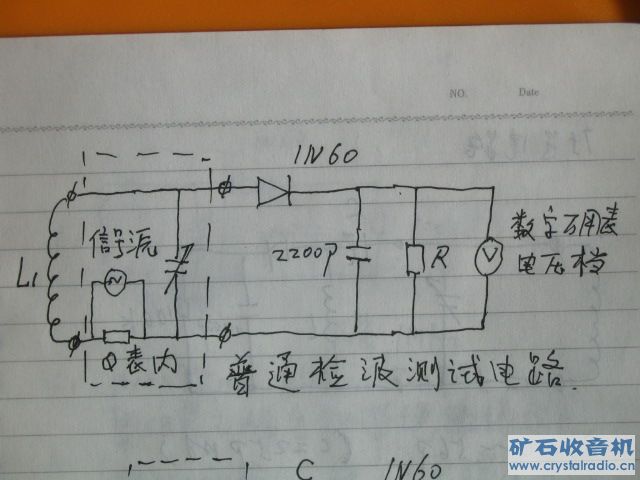 NO. Date
1N60
信号源
L1
2200P
R
V
数字万用表
电压档
Q表内
普通检波测试电路.
C 1N60
矿石收音机
www.crystalradio.cn